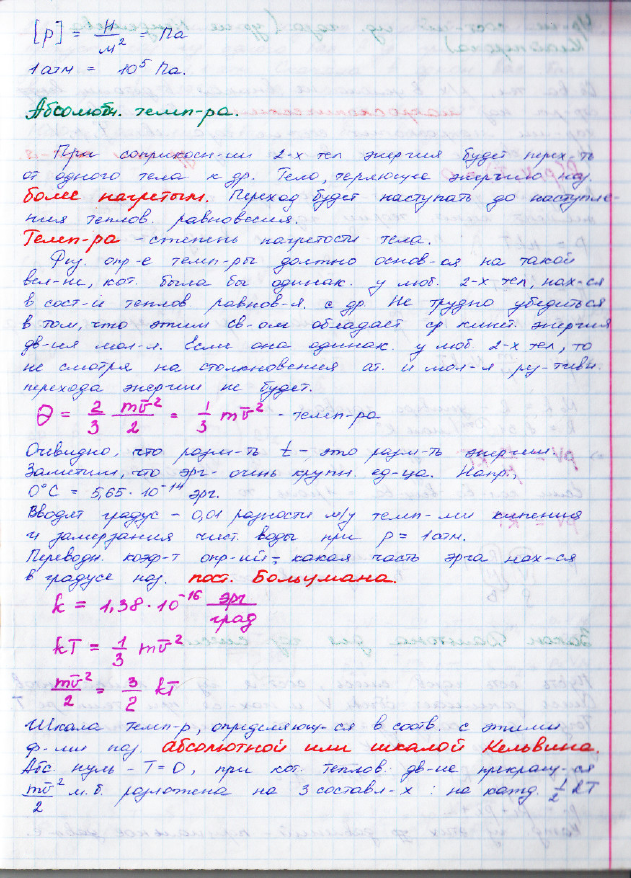 [p] = Н/м² = Па
1 атм = 10⁵ Па.
Абсолютн. темп-ра.
При соприкосн-ии 2-х тел энергия будет перех-ть
от одного тела к др. Тело, теряющую энергию наз.
более нагретым. Переход будет наступать до наступле-
ния теплов. равновесия.
Темп-ра - степень нагретости тела.
Физ. опр-е темп-ры должно основ-ся на такой
вел-не, кот. была бы одинак. у люб. 2-х тел, нах-ся
в сост-и теплов равнов-я. с др Не трудно убедиться
в том, что этим св-ом обладает ср кинет. энергия
дв-ия мол-л. Если она одинак. у люб 2-х тел, то
не смотря на столкновения ат. и мол-л
перехода энергии не будет.
Θ = 2/3 mv̄²/2 = 1/3 mv̄² - темп-ра
Очевидно, что разм-ть t - это разм-ть энергии.
Заметим, что эрг - очень крупн. ед-ца. Напр.,
0°C = 5,65·10⁻¹⁴ эрг.
Вводят градус - 0,01 разности м/у темп-ми кипения
и замерзания чист. воды при p = 1 атм.
Переводн. коэф-т опр-ий - какая часть эрга нах-ся
в градусе наз. пост. Больцмана.
k = 1,38·10⁻¹⁶ эрг/град
kT = 1/3 mv̄²
mv̄²/2 = 3/2 kT
Шкала темп-р, определяющ-ся в соотв. с этими
ф-ми наз. абсолютной или шкалой Кельвина.
Абс. нуль - T = 0, при кот. теплов. дв-ие прекращ-ся
mv̄²/2 м.б. разложена на 3 составл-х : на кажд. 1/2 kT